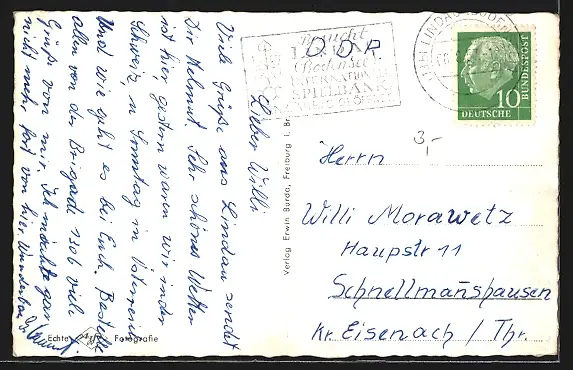 Lieber Willi
Viele Grüße aus Lindau sendet
Dir Helmut. Sehr schönes Wetter
ist hier gestern waren wir in der
Schweiz, n Sonntag in Österreich
Und wie geht es bei Euch. Bestelle
allen von der Brigade 1306 viele
Grüße von mir. Ich möchte gar
nicht mehr fort von hier. Wunderbar
Echte Agfa Fotografie
Verlag Erwin Burda, Freiburg i. Br.
Besucht
LINDAU
Bodensee
INTERNATIONALE
SPIELBANK
DDR
LINDAU (BODENSEE)
10
DEUTSCHE
BUNDESPOST
3,-
Herrn
Willi Morawetz
Haupstr 11
Schnellmanshausen
Kr. Eisenach / Thr.